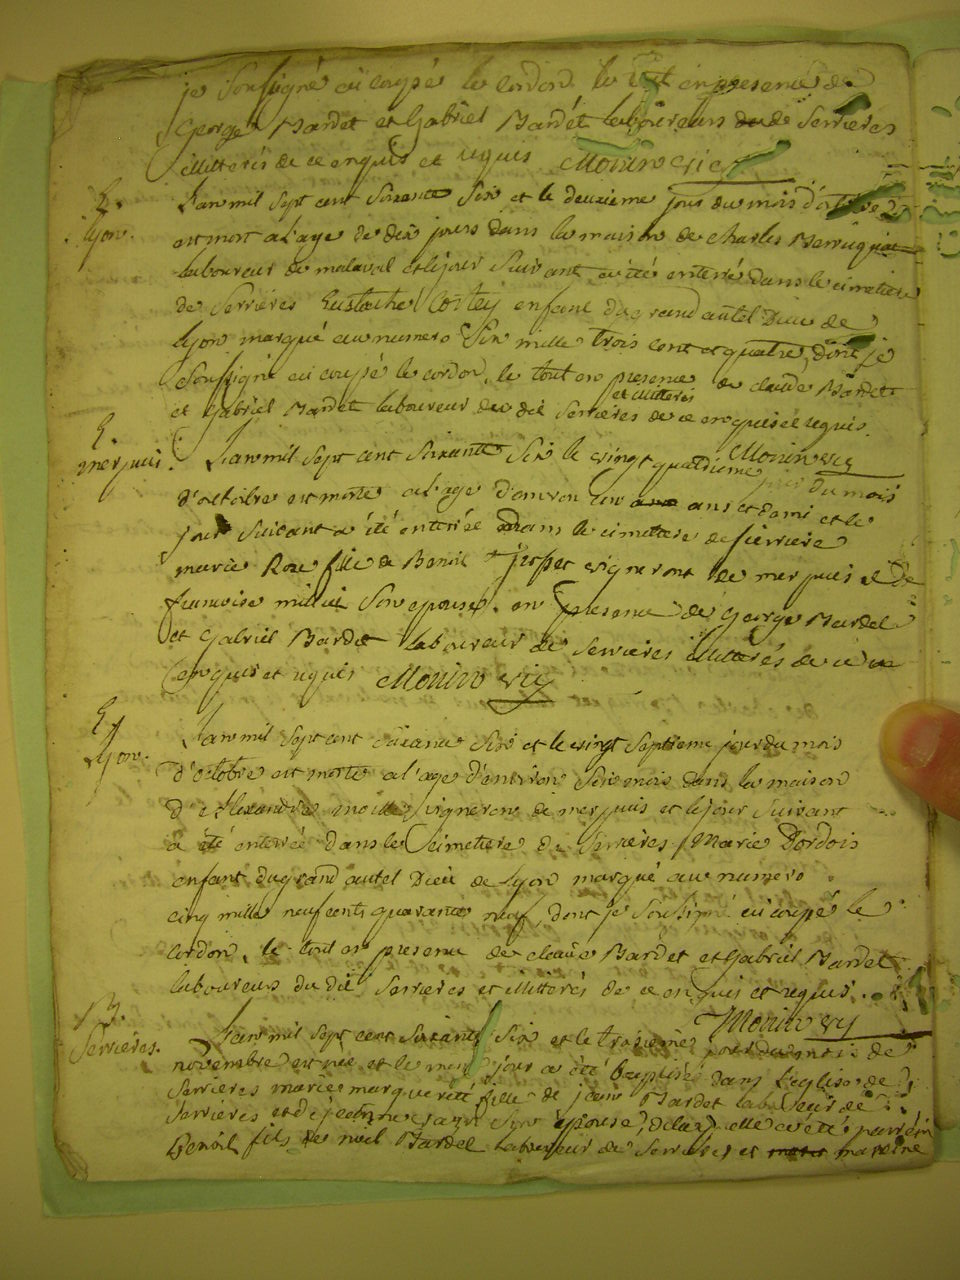 je soussigné ai coupé le cordon le tout en presence de
George Bardet et Gabriel Bardet laboureurs de Serrieres
illitterés de ce enquis et requis Monin vic
E. L'an mil sept cent soixante six et le deuxieme jour du mois d'octobre
Lyon. est mort a l'age de dix jours dans la maison de Charles
laboureur de malaval et le jour suivant a été enterré dans le cimetiere
de Serriéres Eustache enfant du grand autel Dieu de
Lyon marqué au numero six mille trois cent et quatre, dont je
soussigné ai coupé le cordon, le tout en presence de claude Bardet
et illitterés
et Gabriel Bardet laboureur du dit Serrieres de ce enquis et requis.
Monin vic
E. L'an mil sept cent soixante six le vingt quatrieme
merpuis. jour du mois
d'octobre est morte a l'age d'environ un ans et demi et le
jour suivant a été enterrée dans le cimettiere de Serriere
marie Roze fille de Benoit vigneront de merpuis et de
francoise son epouse. en presence de George Bardet
et Gabriel Bardet laboureur de Serrieres illitterés de ce
enquis et requis Monin vic
E. L'an mil sept cent soixante six et le vingt septieme jour du mois
Lyon. d'octobre est morte a l'age d'environ six mois dans la maison
d'Alexandre vigneron de merpuis et le jour suivant
a été enterrée dans le cimetiere de Serrieres Marie Dordois
enfant du grand autel Dieu de Lyon marqué au numero
cinq mille neuf cents quarante neuf, dont je soussigné ai coupé le
cordon, le tout en presence de claude Bardet et Gabriel Bardet
laboureurs du dit Serrieres et illitterés de ce enquis et requis.
Monin vic
B. L'an mil sept cent soixante six et le troisieme jour du mois de
Serrieres. novembre est née et le meme jour a été baptisée dans l'eglise de
Serrieres marie marguerite fille de jean Bardet laboureur de
Serrieres et de son epouse, elle a été parrain
Benoit fils de noel Bardet laboureur de Serrieres et marraine